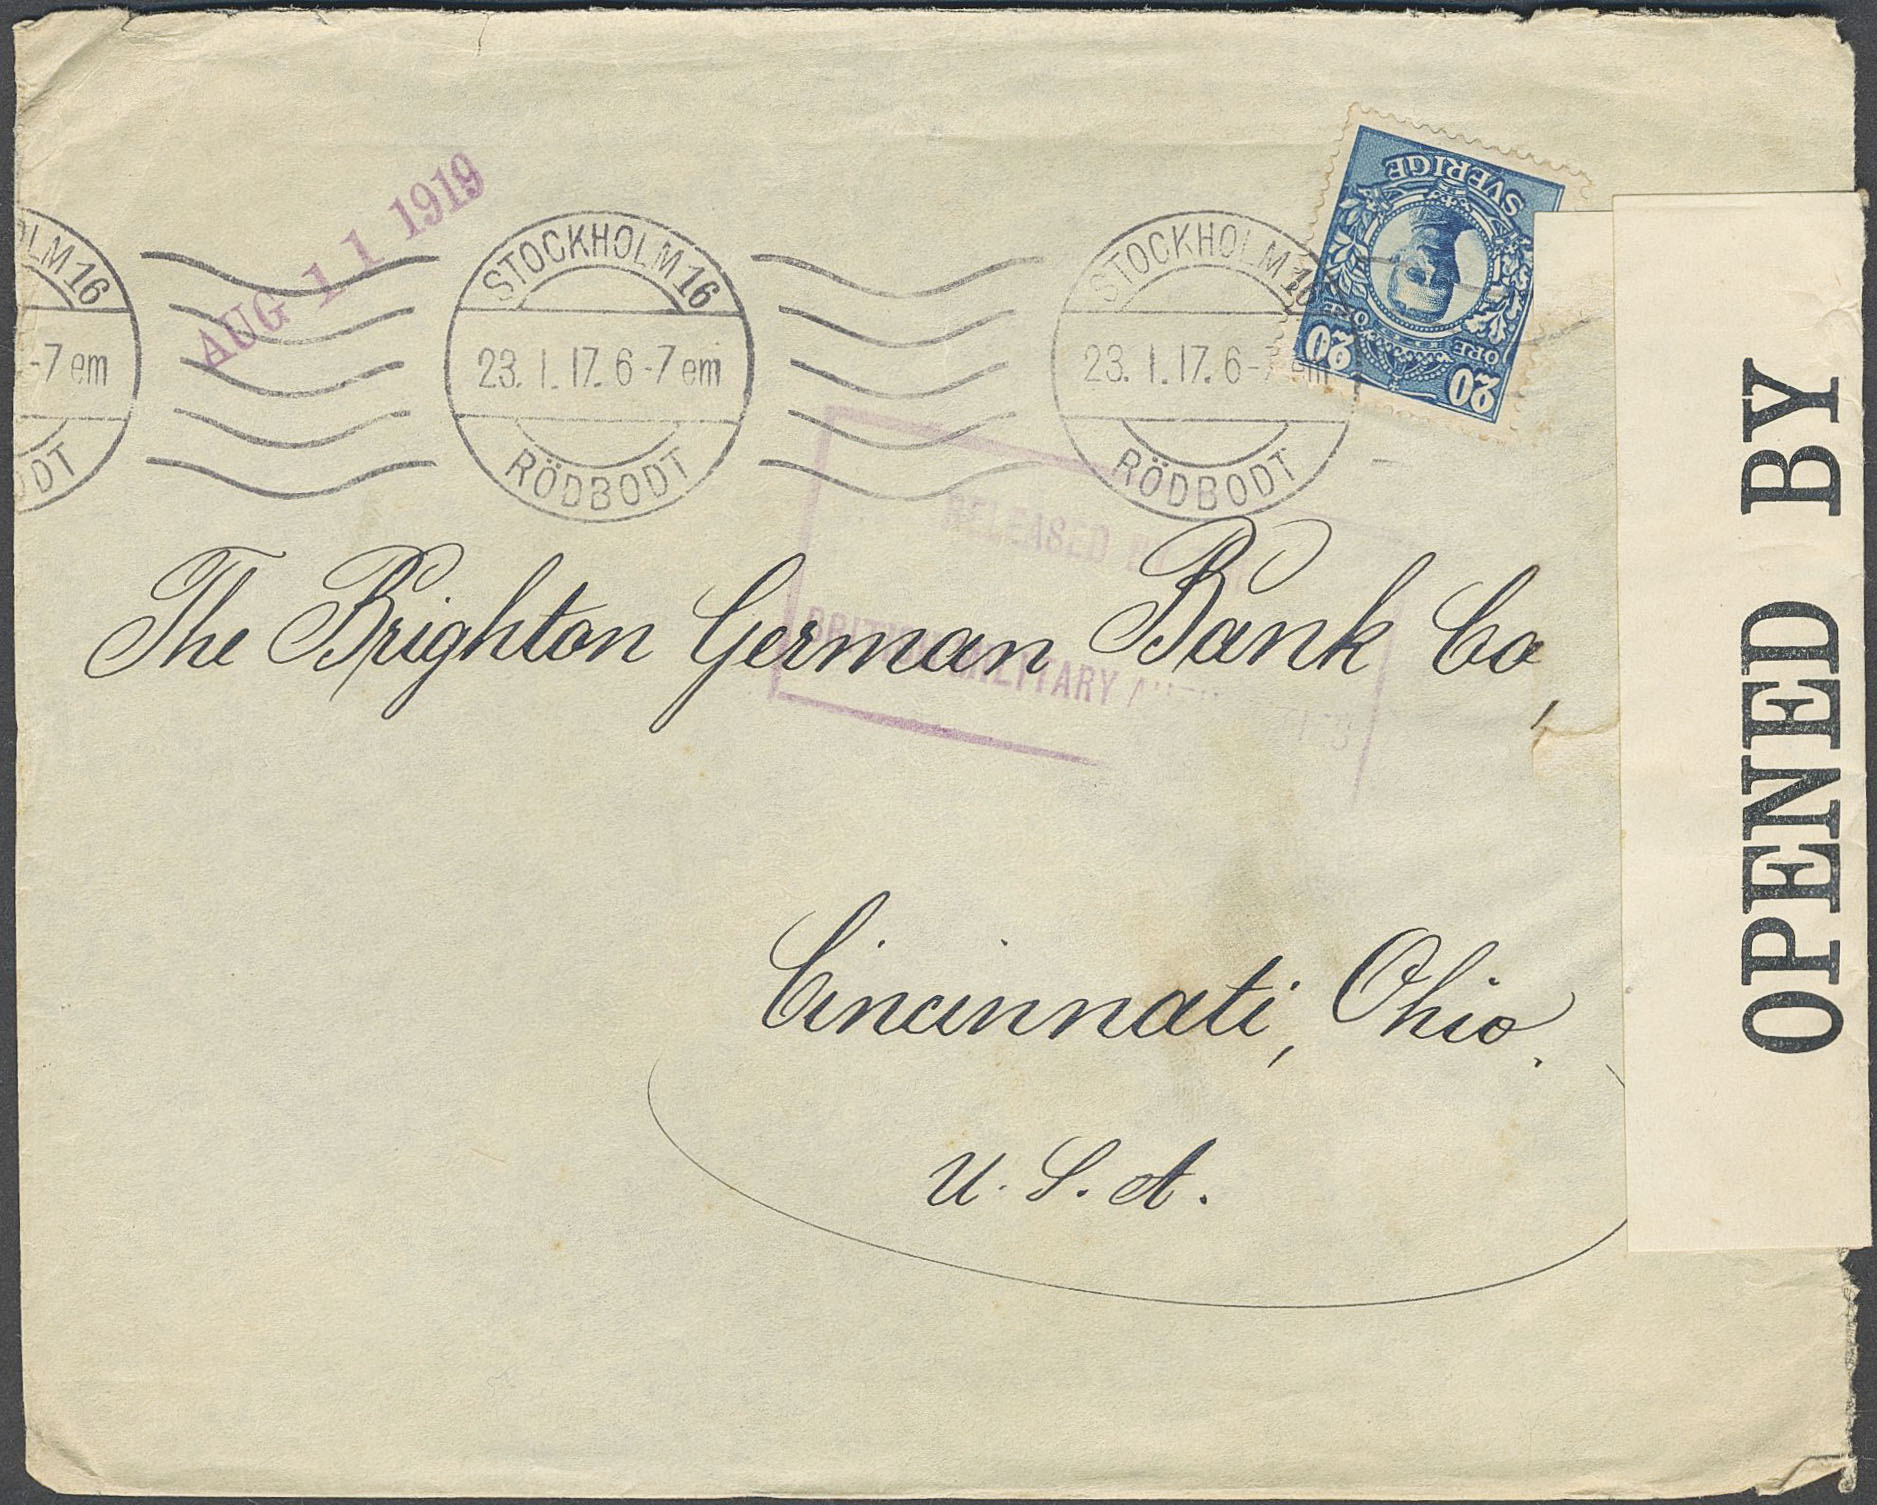 AUG 11 1919
SVERIGE
ÖRE ÖRE
20 20
LM 16
-7 em
ODT
STOCKHOLM 16
23. 1. 17. 6-7 em
RÖDBODT
STOCKHOLM 16
23. 1. 17. 6-7 em
RÖDBODT
RELEASED
BRITISH MILITARY
The Brighton German Bank Co,
Cincinnati, Ohio.
U. S. A.
OPENED BY